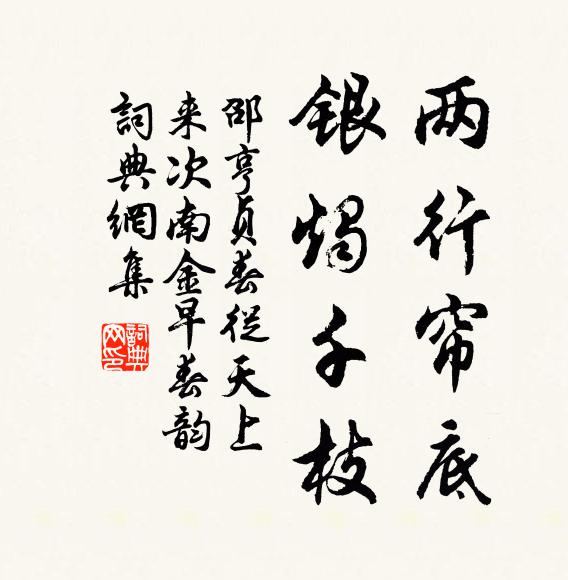 两行帘底
银烛千枝
邵亨贞春从天上
来次南金早春韵
詞典網集
詞典网印